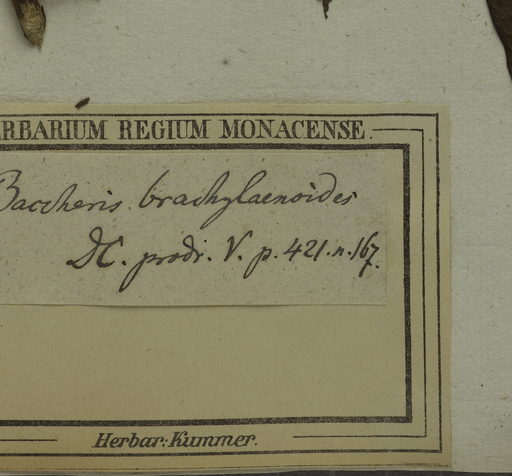 ERBARIUM REGIUM MONACENSE
Baccheris brachylaenoides
DC. prodr. V. p. 421. n. 167.
Herbar: Kummer.